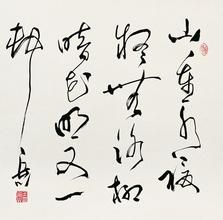 山重水複
疑無路柳
暗花明又一
邨